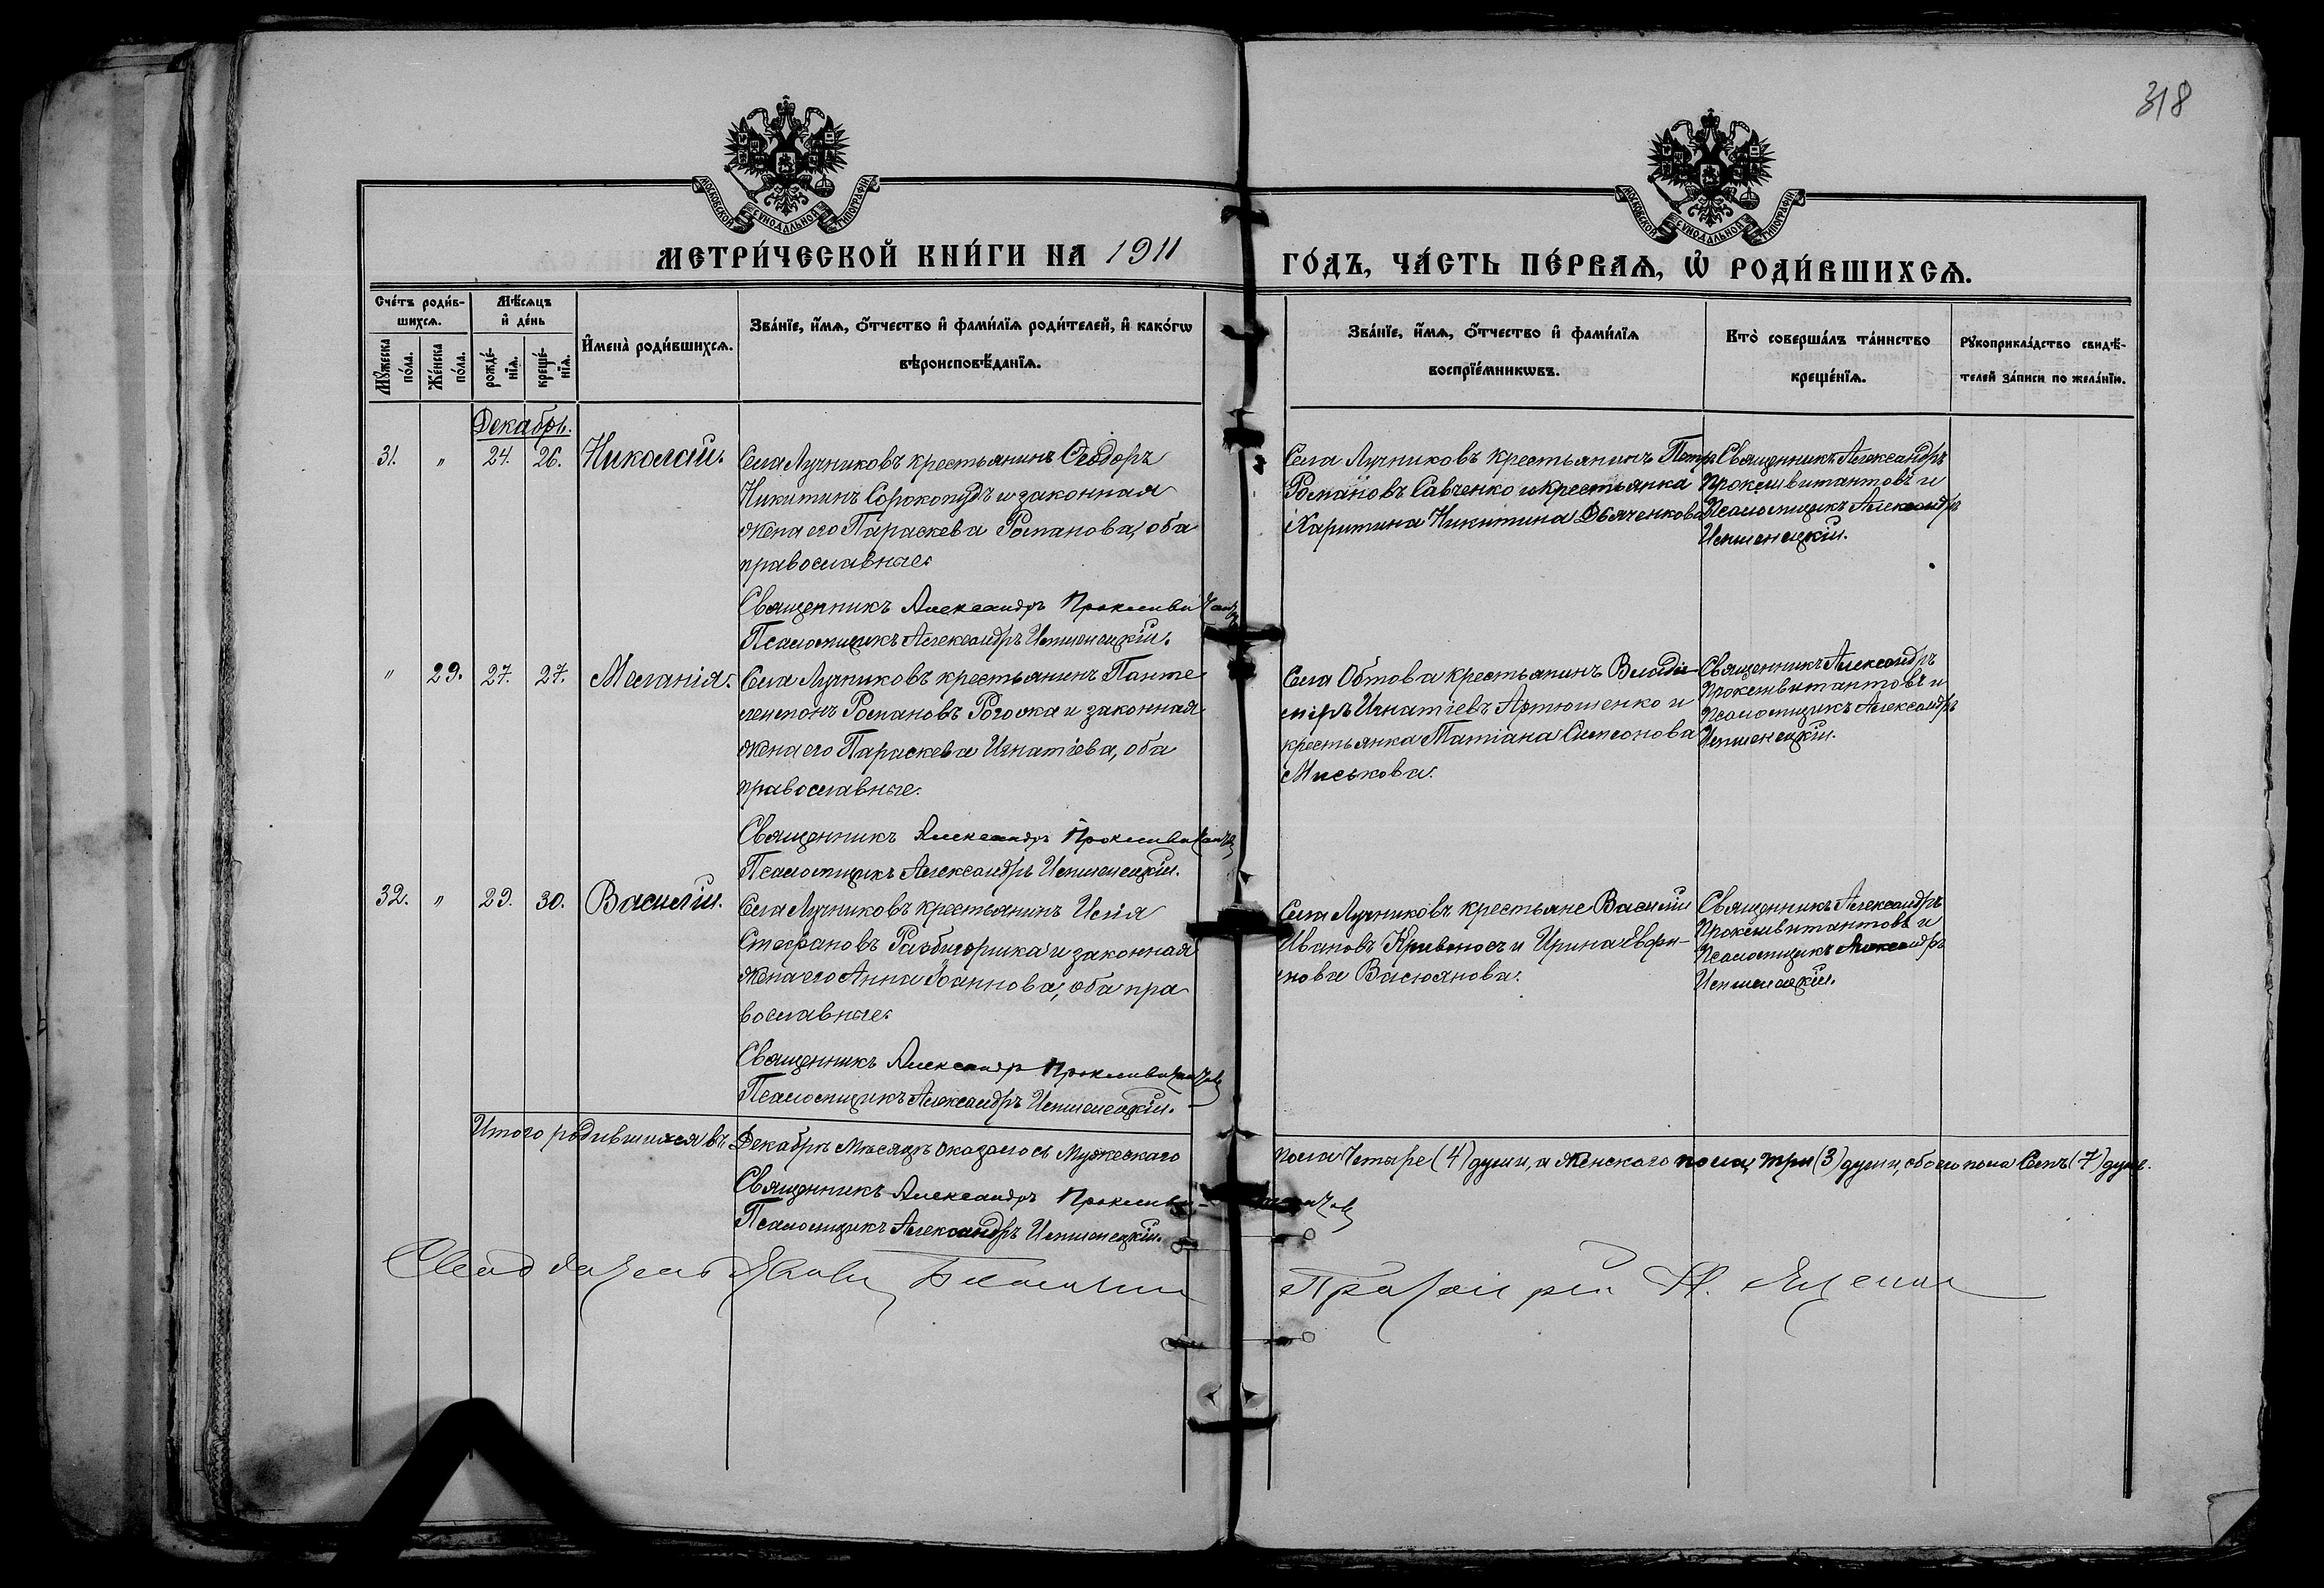 318
МОСКОВСКОЙ СѴНОДАЛЬНОЙ ТИПОГРАФІИ
МОСКОВСКОЙ СѴНОДАЛЬНОЙ ТИПОГРАФІИ
МЕТРИ́ЧЕСКОЙ КНИ́ГИ НА 1911
ГО́ДЪ, ЧА́СТЬ ПЕ́РВАѦ, Ѡ҆ РОДИ́ВШИХСѦ.
Сче́тъ роди́в-
шихсѧ.
Мꙋ́жеска по́ла.
Же́нска по́ла.
Мѣ́сѧцъ
и҆ де́нь
рожде́-нїѧ.
креще́-нїѧ.
И҆мена̀ роди́вшихсѧ.
Зва́нїе, и҆́мѧ, ѻ҆́тчество и҆ фами́лїѧ роди́телей, и҆ како́гѡ
вѣроисповѣ́данїѧ.
Зва́нїе, и҆́мѧ, ѻ҆́тчество и҆ фами́лїѧ
воспрїе́мникѡвъ.
Кто̀ соверша́лъ та́инство
креще́нїѧ.
Рꙋкоприкла́дство свидѣ́-
телей за́писи по жела́нїю.
Декабрь.
31. " 24. 26. Николай.
Села Лучниковъ крестьянинъ Ѳеодоръ
Никитинъ Сорокопудъ и законная
жена его Параскева Романова, оба
православные.
Священникъ Александръ
Псаломщикъ Александръ
Села Лучниковъ крестьянинъ Петръ
Романовъ Савченко и крестьянка
Харитина Никитина Дьяченкова
Священникъ Александръ
и
Псаломщикъ Александръ
" 29. 27. 27. Меланія.
Села Лучниковъ крестьянинъ Панте
леимонъ Романовъ Рогочка и законная
жена его Параскева Игнатіева, оба
православные.
Священникъ Александръ
Псаломщикъ Александръ
Села Обтова крестьянинъ Влади-
миръ Игнатіевъ Артюшенко и
крестьянка Татіана Симеонова
Миськова.
Священникъ Александръ
и
Псаломщикъ Александръ
32. " 29. 30. Василій.
Села Лучниковъ крестьянинъ
Стефановъ и законная
жена его Анна Іоаннова, оба пра
вославные.
Священникъ Александръ
Псаломщикъ Александръ
Села Лучниковъ крестьяне Василій
Ивановъ Кривоносъ и Ирина Евфи-
мова Васюянова.
Священникъ Александръ
и
Псаломщикъ Александръ
Итого родившихся въ Декабрѣ Мѣсяцѣ оказалось Мужескаго
пола Четыре (4) души, а Женскаго пола три (3) души, обоего пола Семь (7) душъ.
Священникъ Александръ
Псаломщикъ Александръ